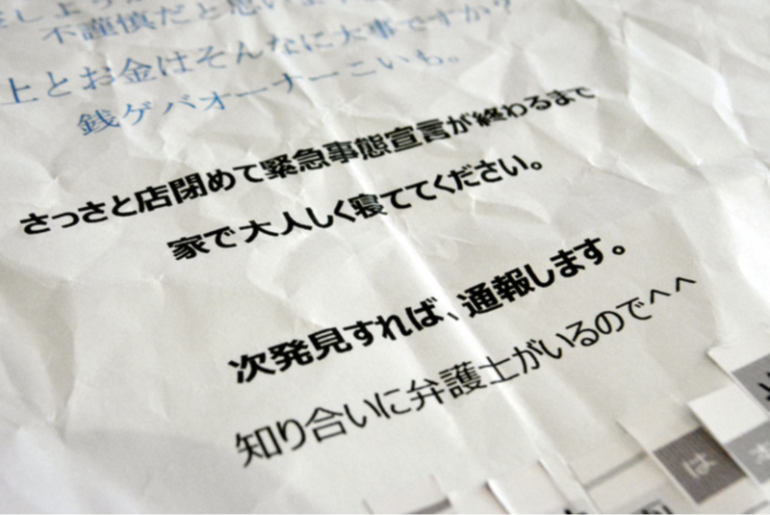 しよう
不謹慎だと思います
上とお金はそんなに大事ですか?
銭ゲバオーナーこいも。
さっさと店閉めて緊急事態宣言が終わるまで
家で大人しく寝ててください。
次発見すれば、通報します。
知り合いに弁護士がいるのでへへ
は